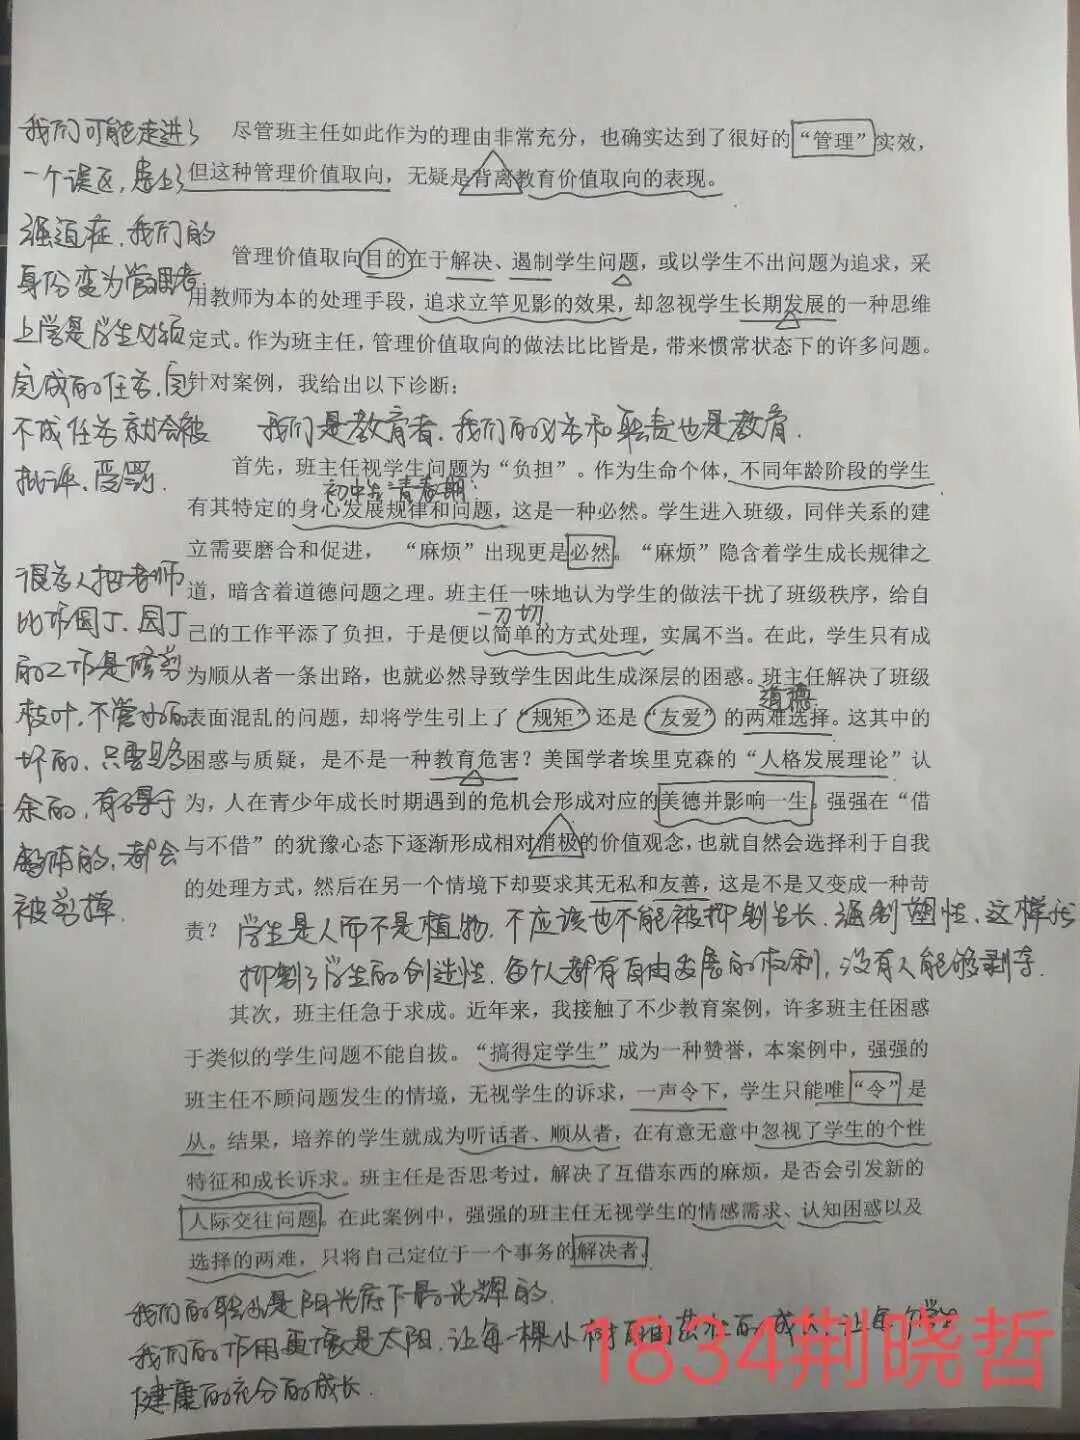 我们可能走进了
一个误区，患上了
强迫症，我们的
身份变为管理者，
上学是学生必须
完成的任务，完
不成任务就会被
批评、受罚．
尽管班主任如此作为的理由非常充分，也确实达到了很好的“管理”实效，
但这种管理价值取向，无疑是背离教育价值取向的表现。
管理价值取向目的在于解决、遏制学生问题，或以学生不出问题为追求，采
用教师为本的处理手段，追求立竿见影的效果，却忽视学生长期发展的一种思维
定式。作为班主任，管理价值取向的做法比比皆是，带来惯常状态下的许多问题。
针对案例，我给出以下诊断：
我们是教育者，我们的义务和职责也是教育．
首先，班主任视学生问题为“负担”。作为生命个体，不同年龄阶段的学生
初中生青春期：
有其特定的身心发展规律和问题，这是一种必然。学生进入班级，同伴关系的建
立需要磨合和促进，“麻烦”出现更是必然。“麻烦”隐含着学生成长规律之
道，暗含着道德问题之理。班主任一味地认为学生的做法干扰了班级秩序，给自
一刀切
己的工作平添了负担，于是便以简单的方式处理，实属不当。在此，学生只有成
为顺从者一条出路，也就必然导致学生因此生成深层的困惑。班主任解决了班级
道德
表面混乱的问题，却将学生引上了“规矩”还是“友爱”的两难选择。这其中的
困惑与质疑，是不是一种教育危害？美国学者埃里克森的“人格发展理论”认
为，人在青少年成长时期遇到的危机会形成对应的美德并影响一生。强强在“借
与不借”的犹豫心态下逐渐形成相对消极的价值观念，也就自然会选择利于自我
的处理方式，然后在另一个情境下却要求其无私和友善，这是不是又变成一种苛
责？
很多人把老师
比作园丁、园丁
的工作是修剪
枝叶，不管好的
坏的，只要是多
余的，有碍于
的，都会
被剪掉．
学生是人而不是植物，不应该也不能被抑制生长、强制塑性，这样
抑制了学生的创造性，每个人都有自由发展的权利，没有人能够剥夺．
其次，班主任急于求成。近年来，我接触了不少教育案例，许多班主任困惑
于类似的学生问题不能自拔。“搞得定学生”成为一种赞誉，本案例中，强强的
班主任不顾问题发生的情境，无视学生的诉求，一声令下，学生只能唯“令”是
从。结果，培养的学生就成为听话者、顺从者，在有意无意中忽视了学生的个性
特征和成长诉求。班主任是否思考过，解决了互借东西的麻烦，是否会引发新的
人际交往问题。在此案例中，强强的班主任无视学生的情感需求、认知困惑以及
选择的两难，只将自己定位于一个事务的解决者。
我们的职业是阳光底下最光辉的．
我们的作用更像是太阳，让每一棵小树自由茁壮的成长，让每个学生
健康的充分的成长．
1834荆晓哲